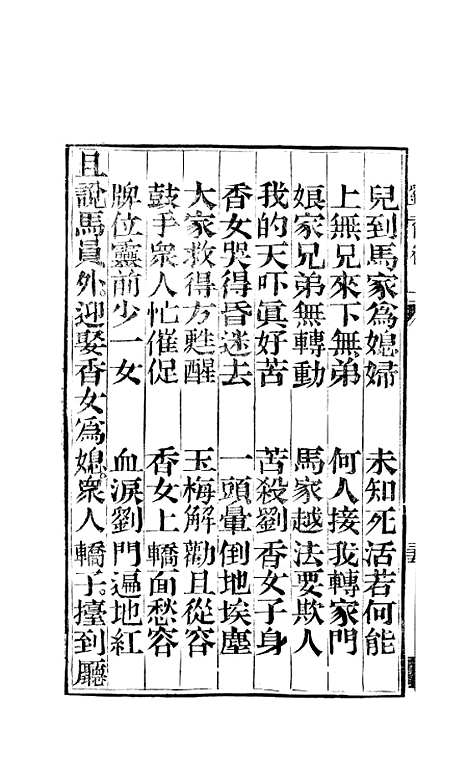 兒到馬家為媳婦　未知死活若何能
上無兄來下無弟　何人接我轉家門
娘家兄弟無轉動　馬家越法要欺人
我的天吓眞好苦　苦殺劉香女子身
香女哭得昏迷去　一頭暈倒地埃塵
大家救得方甦醒　玉梅解勸且從容
鼓手衆人忙催促　香女上轎面愁容
牌位靈前少一女　血淚劉門逼地紅
且說馬員外。迎娶香女爲媳。衆人轎子。擡到廳